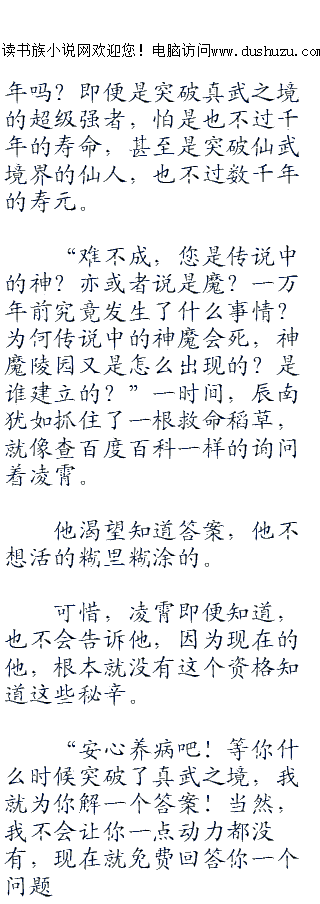 读书族小说网欢迎您！电脑访问www.dushuzu.com
年吗？即便是突破真武之境
的超级强者，怕是也不过千
年的寿命，甚至是突破仙武
境界的仙人，也不过数千年
的寿元。
“难不成，您是传说中
的神？亦或者说是魔？一万
年前究竟发生了什么事情？
为何传说中的神魔会死，神
魔陵园又是怎么出现的？是
谁建立的？”一时间，辰南
犹如抓住了一根救命稻草，
就像查百度百科一样的询问
着凌霄。
他渴望知道答案，他不
想活的糊里糊涂的。
可惜，凌霄即便知道，
也不会告诉他，因为现在的
他，根本就没有这个资格知
道这些秘辛。
“安心养病吧！等你什
么时候突破了真武之境，我
就为你解一个答案！当然，
我不会让你一点动力都没
有，现在就免费回答你一个
问题